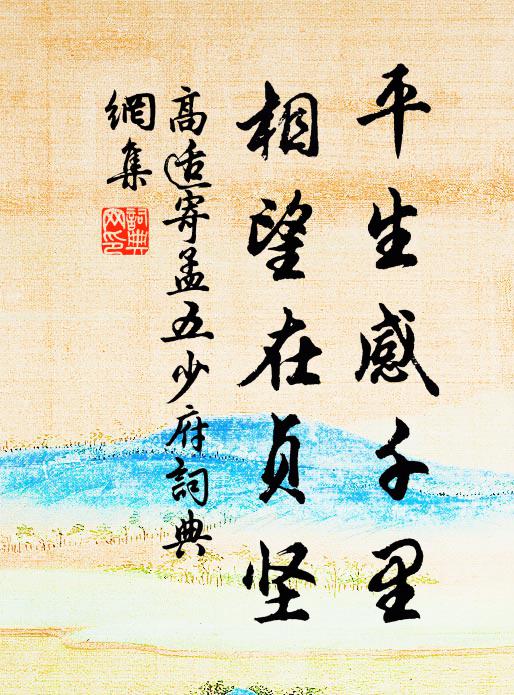 平生感千里
相望在贞坚
高适寄孟五少府詞典
網集
詞典
网印